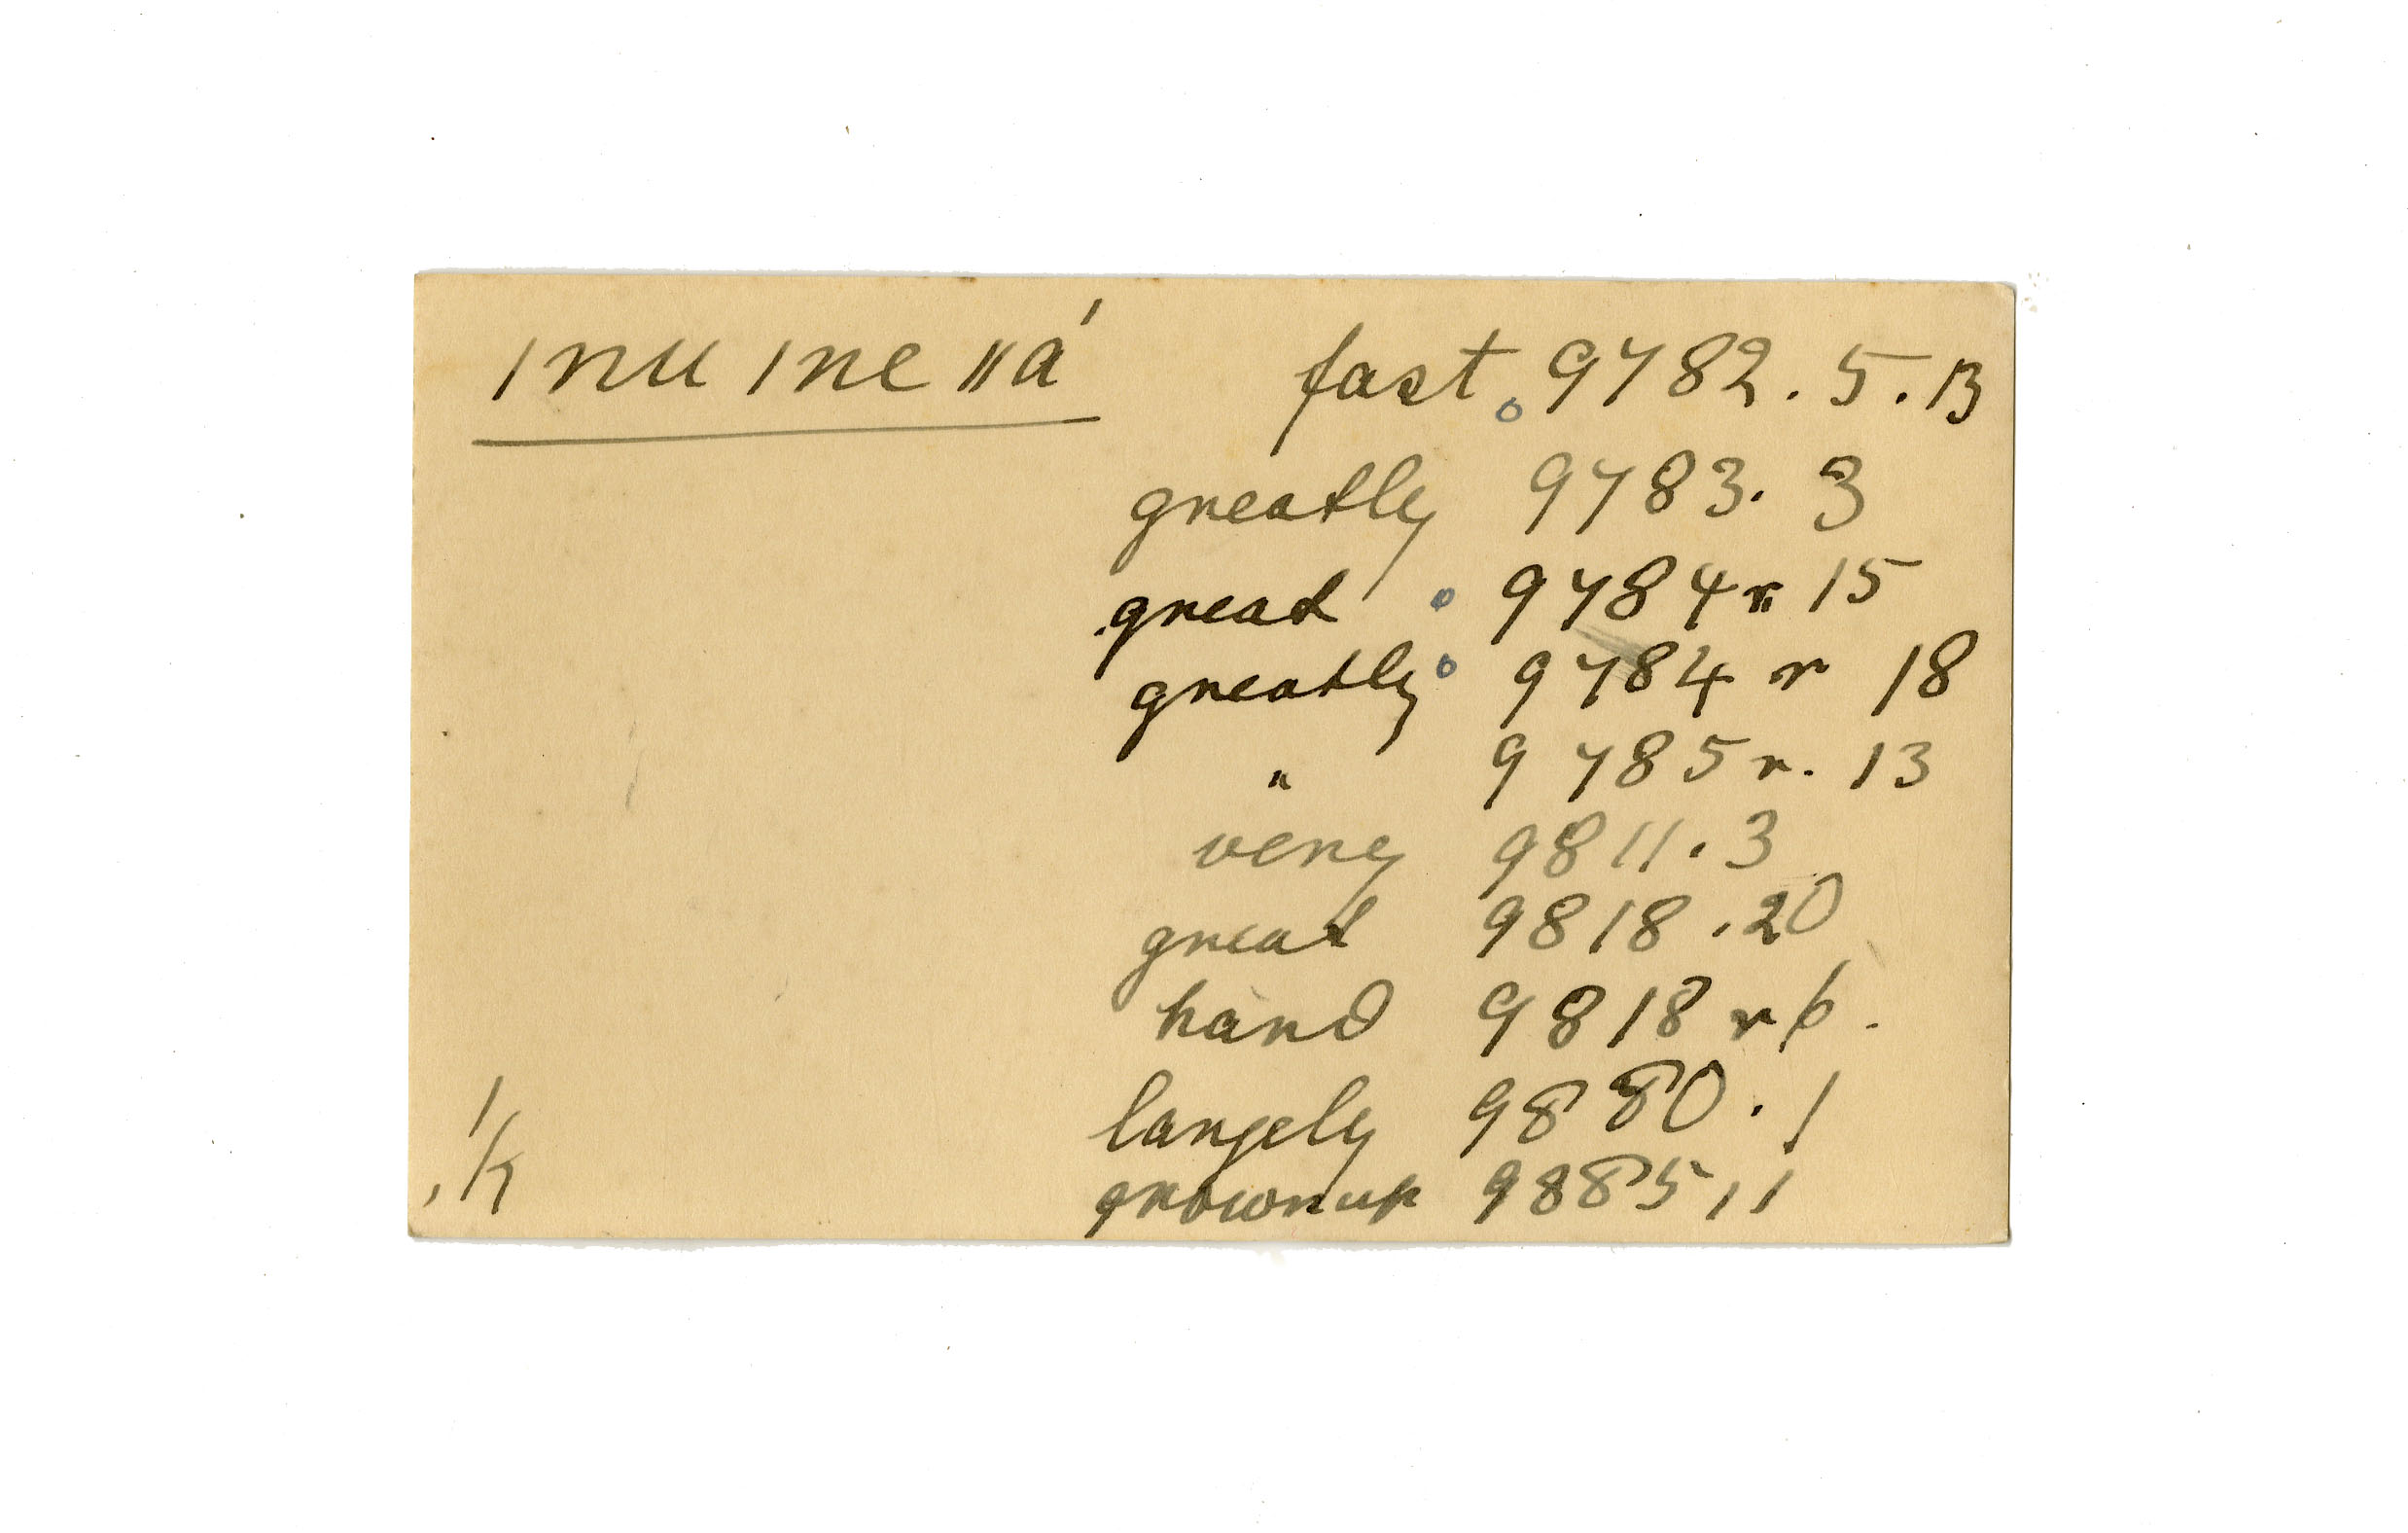 /nu /ne //á fast 9782.5.13
greatly 9783.3
great 9784 r 15
greatly 9784 r 18
" 9785 r. 13
very 9811.3
great 9818.20
hard 9818 r 6.
largely 9880.1
grown up 9885,1